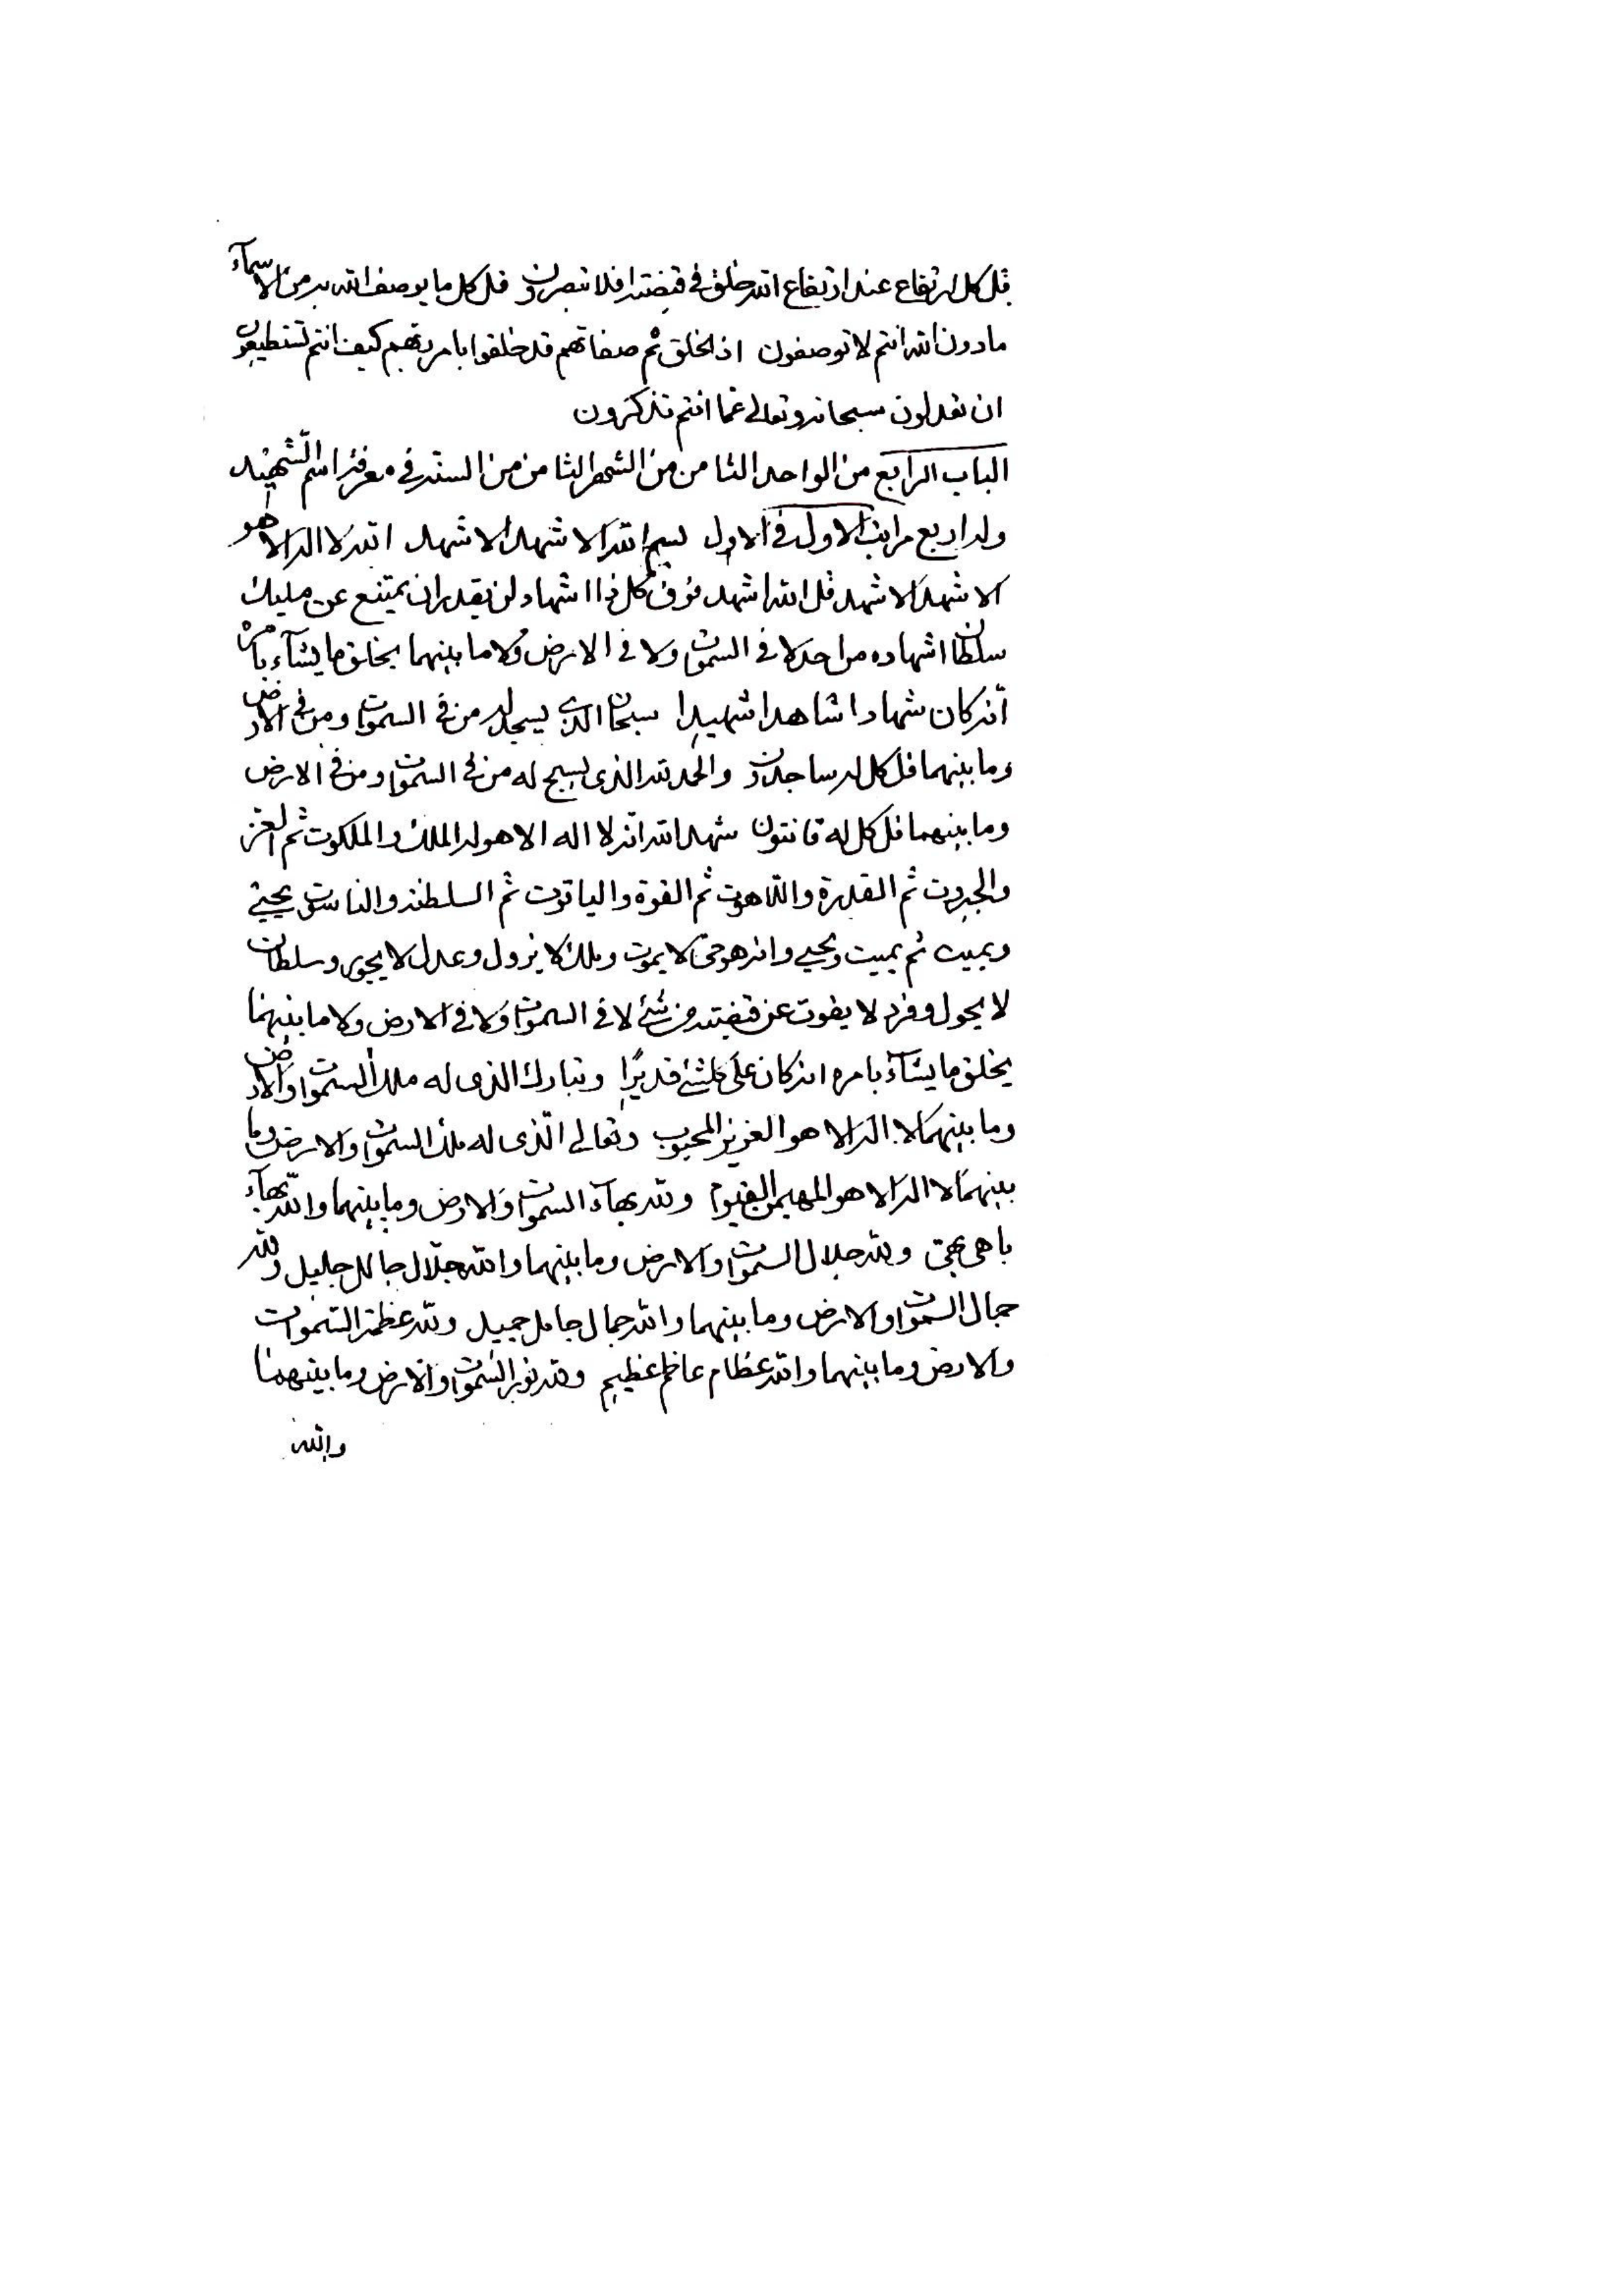 قل كل ارتفاع عند ارتفاع الله خلق في قبضته افلا تبصرون قل كل ما يوصف الله به من الاسمآء
ما دون الله انتم لا توصفون اذ الخلق ثم صفاتهم قد خلقوا بامر ربهم كيف انتم تستطيعون
ان تعدلون سبحانه وتعالى عما انتم تذكرون
الباب الرابع من الواحد الثامن من الشهر الثامن من السنة في معرفة اسم الشهيد
وله اربع مراتب الاول في الاول بسم الله الاشهد الاشهد الله لا اله الا هو
الاشهد الاشهد قل الله اشهد فوق كل ذا اشهاد لن يقدر ان يمتنع عن مليك
سلطان اشهاده من احد لا في السموات ولا في الارض ولا ما بينهما يخلق ما يشآء بامره
انه كان شهادا شاهدا شهيدا سبحان الذي يسجد له من في السموات ومن في الارض
وما بينهما قل كل له ساجدون والحمد لله الذي يسبح له من في السموات ومن في الارض
وما بينهما قل كل له قانتون شهد الله انه لا اله الا هو له الملك والملكوت ثم العز
والجبروت ثم القدرة واللاهوت ثم القوة والياقوت ثم السلطنة والناسوت يحيي
ويميت ثم يميت ويحيي وانه هو حي لا يموت وملك لا يزول وعدل لا يجور وسلطان
لا يحول وفرد لا يفوت عن قبضته من شئ لا في السموات ولا في الارض ولا ما بينهما
يخلق ما يشآء بامره انه كان على كلشئ قديرا وتبارك الذي له ملك السموات والارض
وما بينهما لا اله الا هو العزيز المحبوب وتعالى الذي له ملك السموات والارض وما
بينهما لا اله الا هو المهيمن القيوم ولله بهآء السموات والارض وما بينهما والله بهآء
باهى بهي ولله جلال السموات والارض وما بينهما والله جلال جالل جليل ولله
جمال السموات والارض وما بينهما والله جمال جامل جميل ولله عظمة السموات
والارض وما بينهما والله عظام عاظم عظيم ولله نور السموات والارض وما بينهما
والله